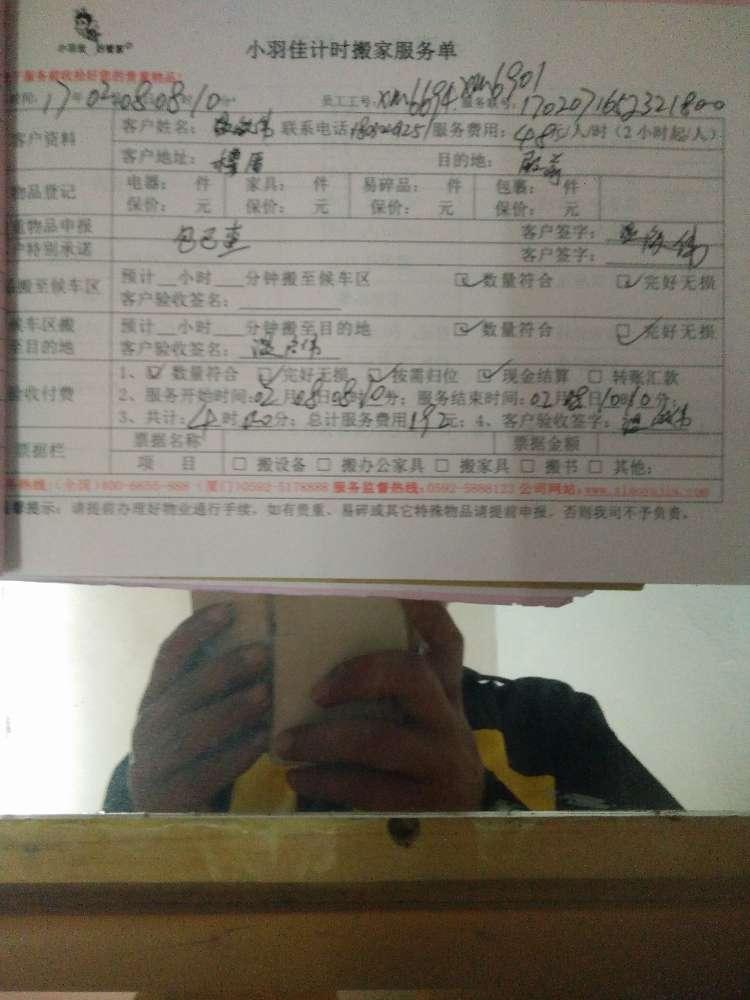 小羽佳计时搬家服务单
服务前收拾好您的贵重物品!
时间: 17年02月08日08时10分 员工工号: XM6694 XM6901 服务联号: 1702071652321800
客户资料 客户姓名: 联系电话 服务费用: 48元/人/时(2小时起/人)
客户地址: 目的地:
物品登记 电器: 件 家具: 件 易碎品: 件 包裹: 件
保价: 元 保价: 元 保价: 元 保价: 元
物品申报 客户签字:
户特别承诺 包已查 客户签字:
搬至候车区 预计__小时___分钟搬至候车区 ☑数量符合 ☑完好无损
客户验收签名:
候车区搬 预计__小时___分钟搬至目的地 ☑数量符合 ☑完好无损
至目的地 客户验收签名:
验收付费 1、☑数量符合 ☑完好无损 ☑按需归位 ☑现金结算 □转账汇款
2、服务开始时间:02月08日08时10分; 服务结束时间:02月08日10时10分;
3、共计:4时00分; 总计服务费用192元; 4、客户验收签字:
票据栏 票据名称 票据金额
项 目 □ 搬设备 □ 搬办公家具 □ 搬家具 □ 搬书 □ 其他:
务热线:(全国)400-6655-888 (厦门)0592-5178888 服务监督热线:0592-5888123 公司网站:www.xiaoyujia.com
提示: 请提前办理好物业通行手续。如有贵重、易碎或其它特殊物品请提前申报。否则我司不予负责。